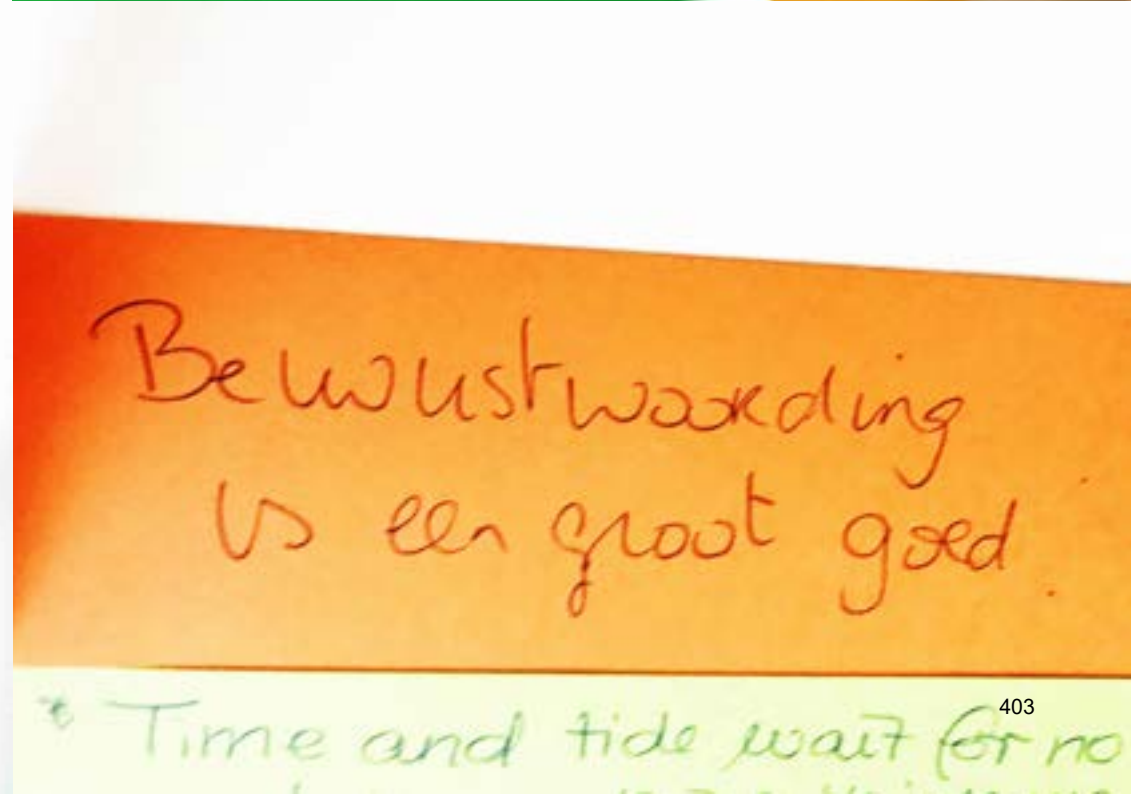 Bewustwording
is een groot goed.
403
* Time and tide wait for no